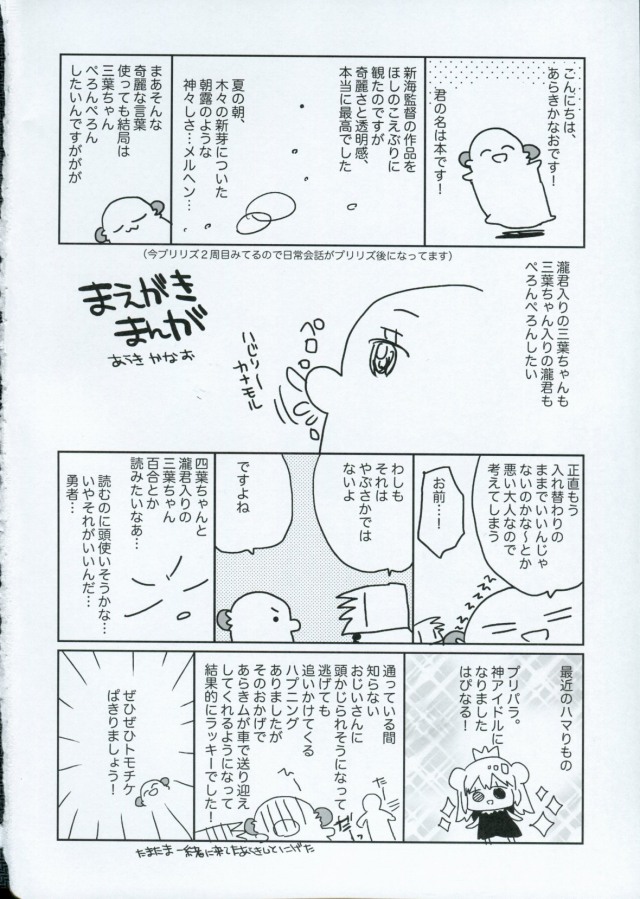 こんにちは、
あらきかなおです!
君の名は本です!
新海監督の作品を
ほしのこえぶりに
観たのですが
奇麗さと透明感、
本当に最高でした
夏の朝、
木々の新芽についた
朝露のような
神々しさ…メルヘン…
まあそんな
奇麗な言葉
使っても結局は
三葉ちゃん
ぺろんぺろん
したいんですががが
(今プリリズ2周目みてるので日常会話がプリリズ後になってます)
まえがき
まんが
あらき かなお
瀧君入りの三葉ちゃんも
三葉ちゃん入りの瀧君も
ぺろんぺろんしたい
ペロ
ハじリー
カナモル
正直もう
入れ替わりの
ままでいいんじゃ
ないのかな〜とか
悪い大人なので
考えてしまう
お前…!
わしも
それは
やぶさかでは
ないよ
ですよね
四葉ちゃんと
瀧君入りの
三葉ちゃん
百合とか
読みたいなあ…
読むのに頭使いそうかな…
いやそれがいいんだ…
勇者…
最近のハマりもの
プリパラ。
神アイドルに
なりました
はぴなる!
通っている間
知らない
おじいさんに
頭かじられそうになって
逃げても
追いかけてくる
ハプニング
ありましたが
そのおかげで
あらきムが車で送り迎え
してくれるようになって
結果的にラッキーでした!
たまたま一緒に来てた
ぜひぜひトモチケ
ぱきりましょう!